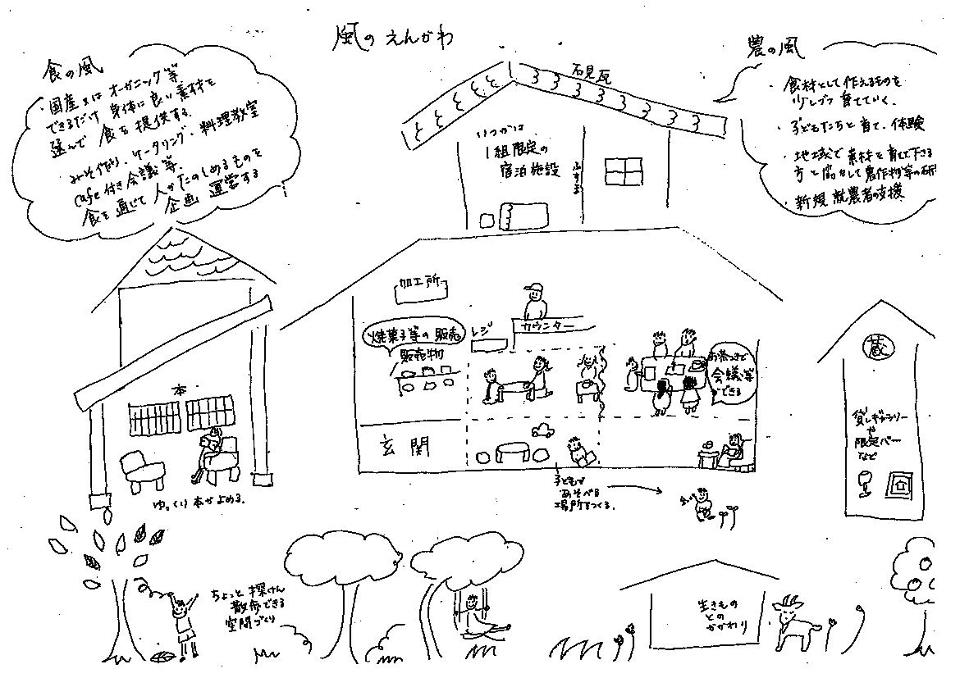 風のえんがわ
食の風
・国産又はオーガニック等
できるだけ身体に良い素材を
選んで食を提供する。
みそ作り、ケータリング・料理教室
cafe付き会議等。
食を通じて人がたのしめるものを
企画運営する
農の風
・食材として作えるものを
少しづつ育てていく。
・子どもたちと育て、体験
・地域で素材を育てて下さる
方と協力して農作物等の研
・新規就農者の支援
石見瓦
いつかは
1組限定の
宿泊施設
ふすま
加工所
焼菓子等の販売
販売物
レジ
カウンター
お茶つきで
会議等
できる
玄関
子どもが
あそべる
場所をつくる。
本
ゆっくり本がよめる。
蔵
貸しギャラリー
や
限定バー
など
ちょっと探けん
散歩できる
空間づくり
生きもの
との
かかわり